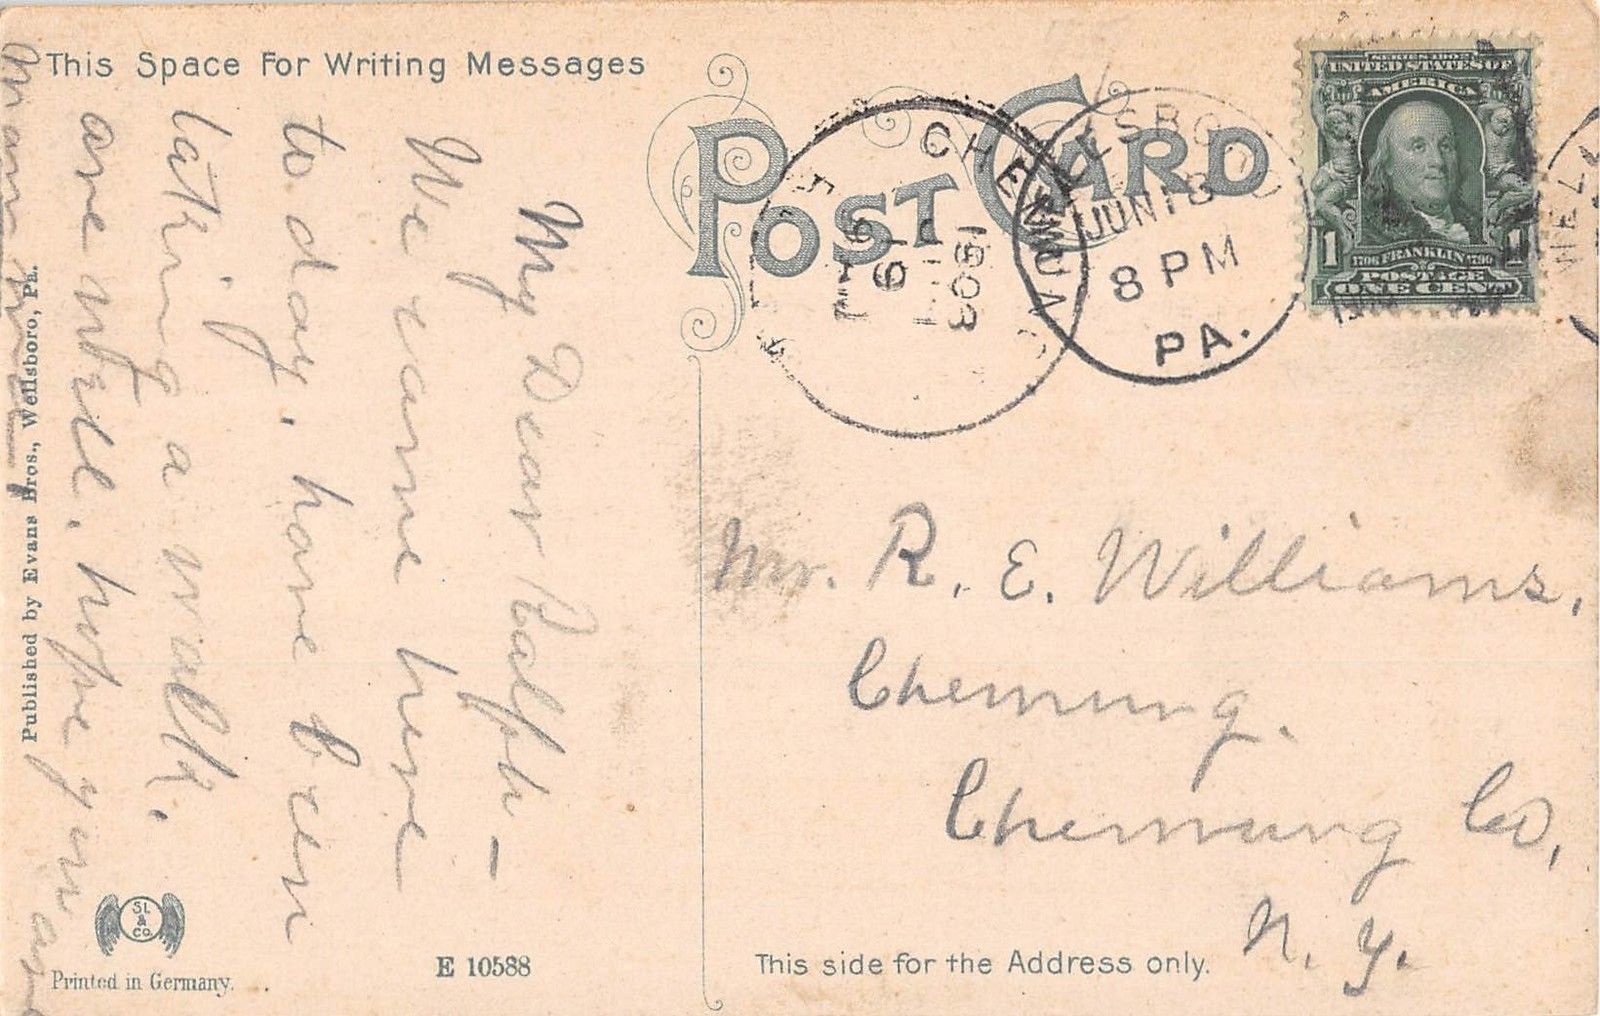 This Space For Writing Messages
POST CARD
My Dear Ralph –
We came here
to day. have been
taking a walk.
are well. hope you are
Published by Evans Bros., Wellsboro, Pa.
SL & CO.
Printed in Germany.
E 10588
CHEMUNG
JUN
19
1908
WELLSBORO
JUN 18
8 PM
PA.
SERIES 1902
UNITED STATES OF
AMERICA
1706 FRANKLIN 1790
POSTAGE
1 ONE CENT 1
Mr. R. E. Williams,
Chemung.
Chemung Co,
N. Y.
This side for the Address only.